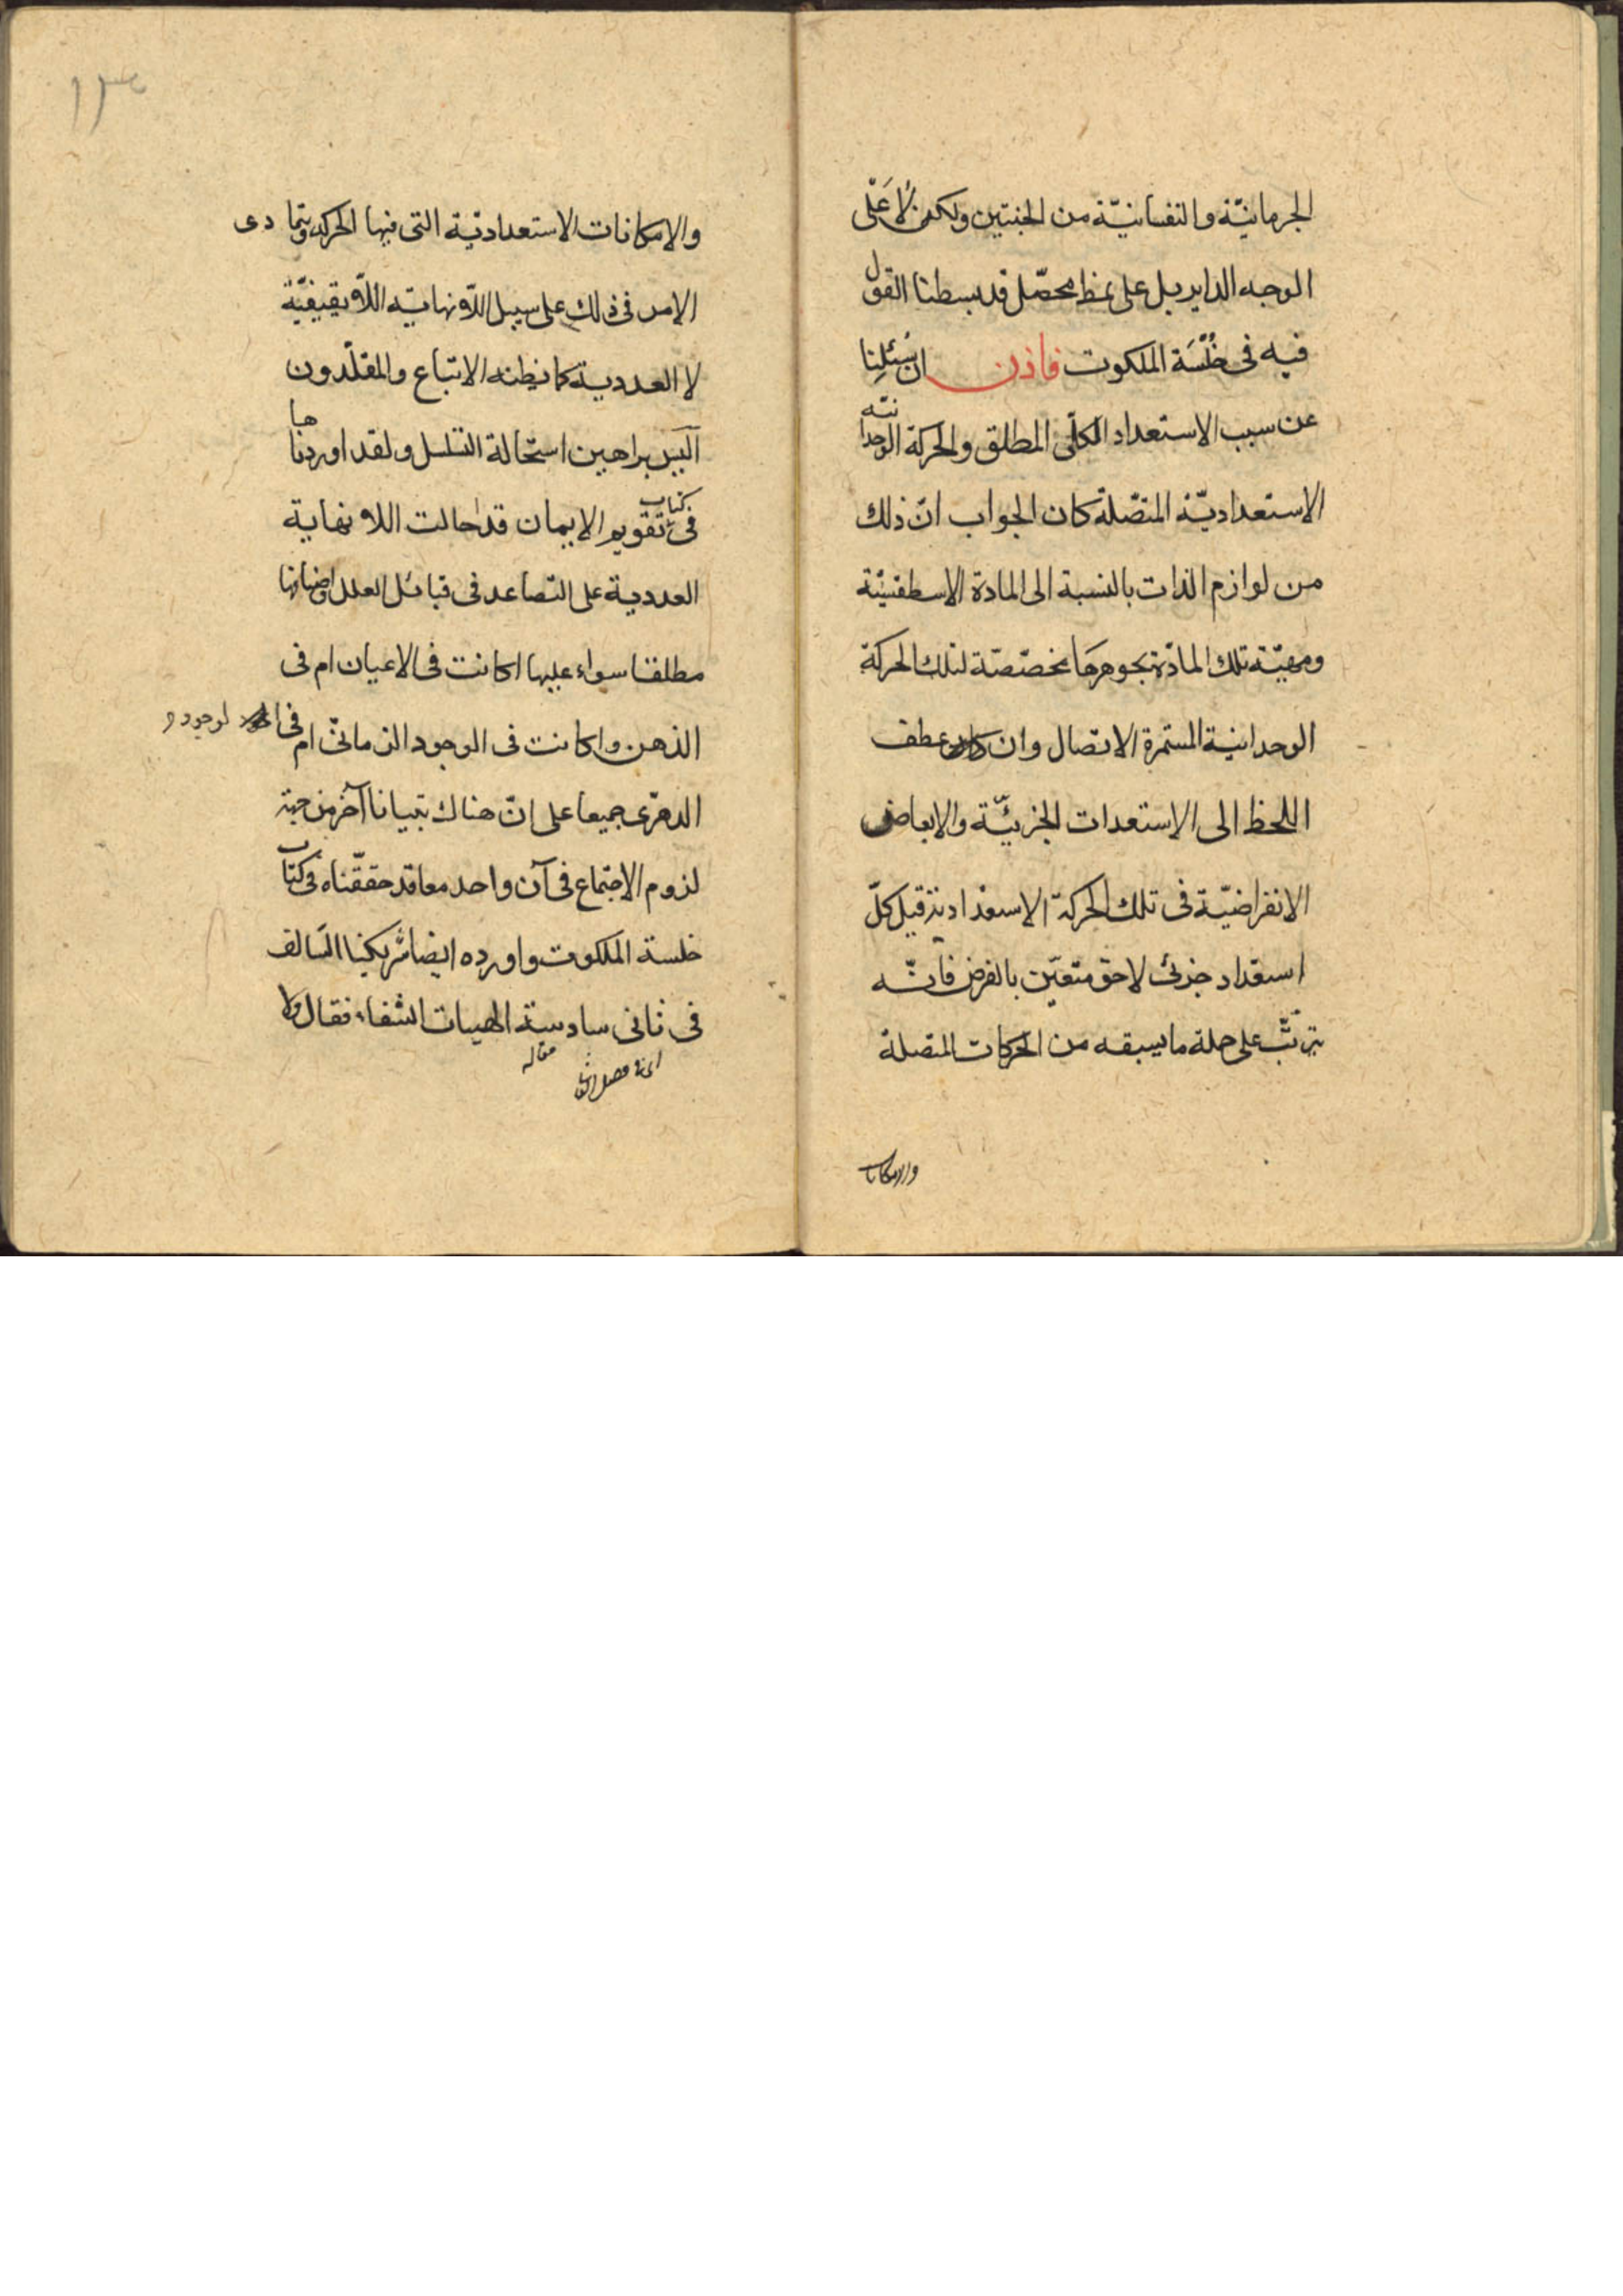 الجرمانيّة والنفسانيّة من الجنبتين ولكن لا عَلَى
الوجه الداير بل على نمط محصّل قد بسطنا القول
فيه فى خُلْسَة الملكوت فاذن ان سُئلِنا
عن سبب الاستعداد الكلّى المطلق والحركة الوحدانيّه
الاستعداديّة المتصّلة كان الجواب انّ ذلك
من لوازم الذات بالنسبة الى المادة الاسطقسيّة
ومهيّة تلك المادّة بجوهرها مخصّصة لتلك الحركة
الوحدانية المستمرة الاتصال وان عطف
اللحظ الى الاستعدات الجزئيّة والابعاض
الانفراضيّة فى تلك الحركة الاستعدادية قيل كلّ
استعداد جزئى لاحق متعيّن بالفرض فانّه
يترتّب على جملة ما يسبقه من الحركات المتصلة
والامكانات
١٣٠
والامكانات الاستعداديّة التى فيها الحركه ويتمادى
الامر فى ذلك على سبيل اللّانهايّه اللّايقيفيّة
لا العددية كما يظنه الاتباع والمقلّدون
أليس براهين استحالة التسلسل ولقد اوردناها
فى كتاب تقويم الايمان قد احالت اللانهاية
العددية على التصاعد فى قبائل العلل واضافاتها
مطلقا سواء عليها اكانت فى الاعيان ام فى
الذهن واكانت فى الوجود الزمانىّ ام فى الوجود
الدهرّى جميعا على انّ هناك تبيانا آخر من جهة
لزوم الاجتماع فى آن واحد معا قد حققّناه فى كتاب
خلسة الملكوت واورده ايضا شريكنا السَالف
فى ثانى سادسة الهيات الشفاء فقال ولا
مقاله